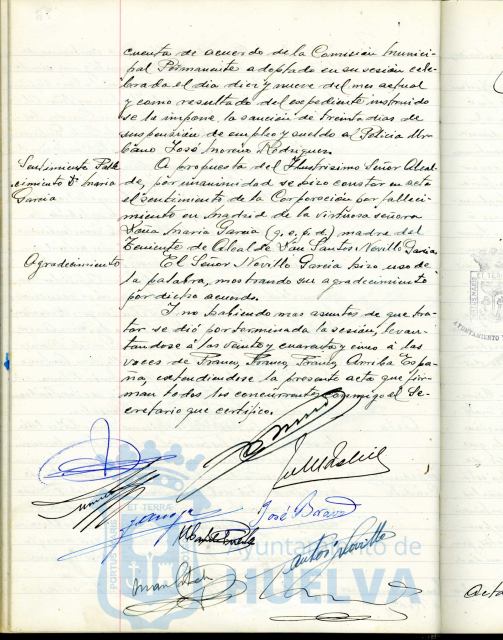 cuenta de acuerdo de la Comisión Munici-
pal Permanente adoptado en su sesión cele-
brada el día diez y nueve del mes actual
y como resultado del expediente instruido
se le impone la sanción de treinta días de
suspensión de empleo y sueldo al Policia Ur-
bano José Moreno Rodriguez.
Sentimiento Falle
cimiento Dª Maria
Garcia
A propuesta del Ilustrisimo Señor Alcal-
de, por unanimidad se hizo constar en acta
el sentimiento de la Corporación por falleci-
miento en Madrid de la virtuosa señora
Doña Maria Garcia (q. e. p. d.) madre del
Teniente de Alcalde Don Santos Novillo Garcia.
Agradecimiento
El Señor Novillo Garcia hizo uso de
la palabra, mostrando su agradecimiento
por dicho acuerdo.
Y no habiendo mas asuntos de que tra-
tar se dió por terminada la sesión, levan-
tandose á las veinte y cuarenta y cinco á las
voces de Franco, Franco, Franco, Arriba Espa-
ña, extendiendose la presente acta que fir-
man todos los concurrentes conmigo el Se-
cretario que certifico.
José Bravo
Santos Novillo
ET TERRÆ
PORTUS MARIS
Ayuntamiento de
HUELVA
AYUNTAMIENTO
Acta